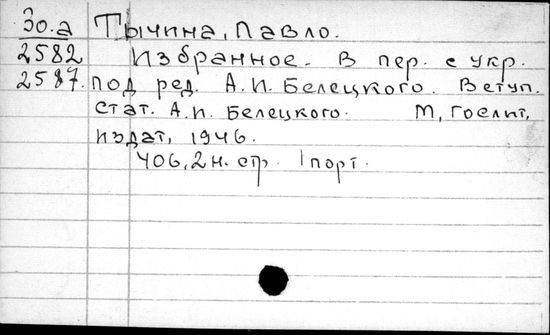 30.а Тычина, Павло.
2582 Избранное. В пер. с укр.
2587. под ред. А.И. Белецкого. Вступ.
стат. А.И. Белецкого. М, Гослит,
издат, 1946.
406,2 н. стр. 1 порт.